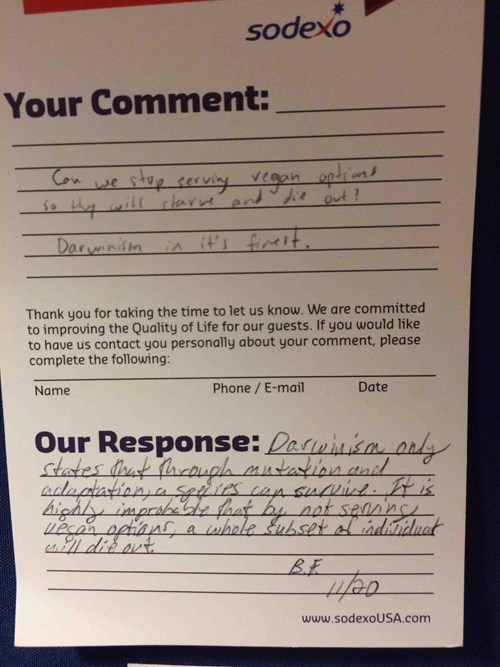 sodexo
Your Comment:
Can we stop serving vegan options
so they will starve and die out?
Darwinism in it's finest.
Thank you for taking the time to let us know. We are committed
to improving the Quality of Life for our guests. If you would like
to have us contact you personally about your comment, please
complete the following:
Name Phone / E-mail Date
Our Response: Darwinism only
states that through mutation and
adaptation, a species can survive. It is
highly improbable that by not serving
vegan options, a whole subset of individual
will die out.
B.F.
11/20
www.sodexoUSA.com